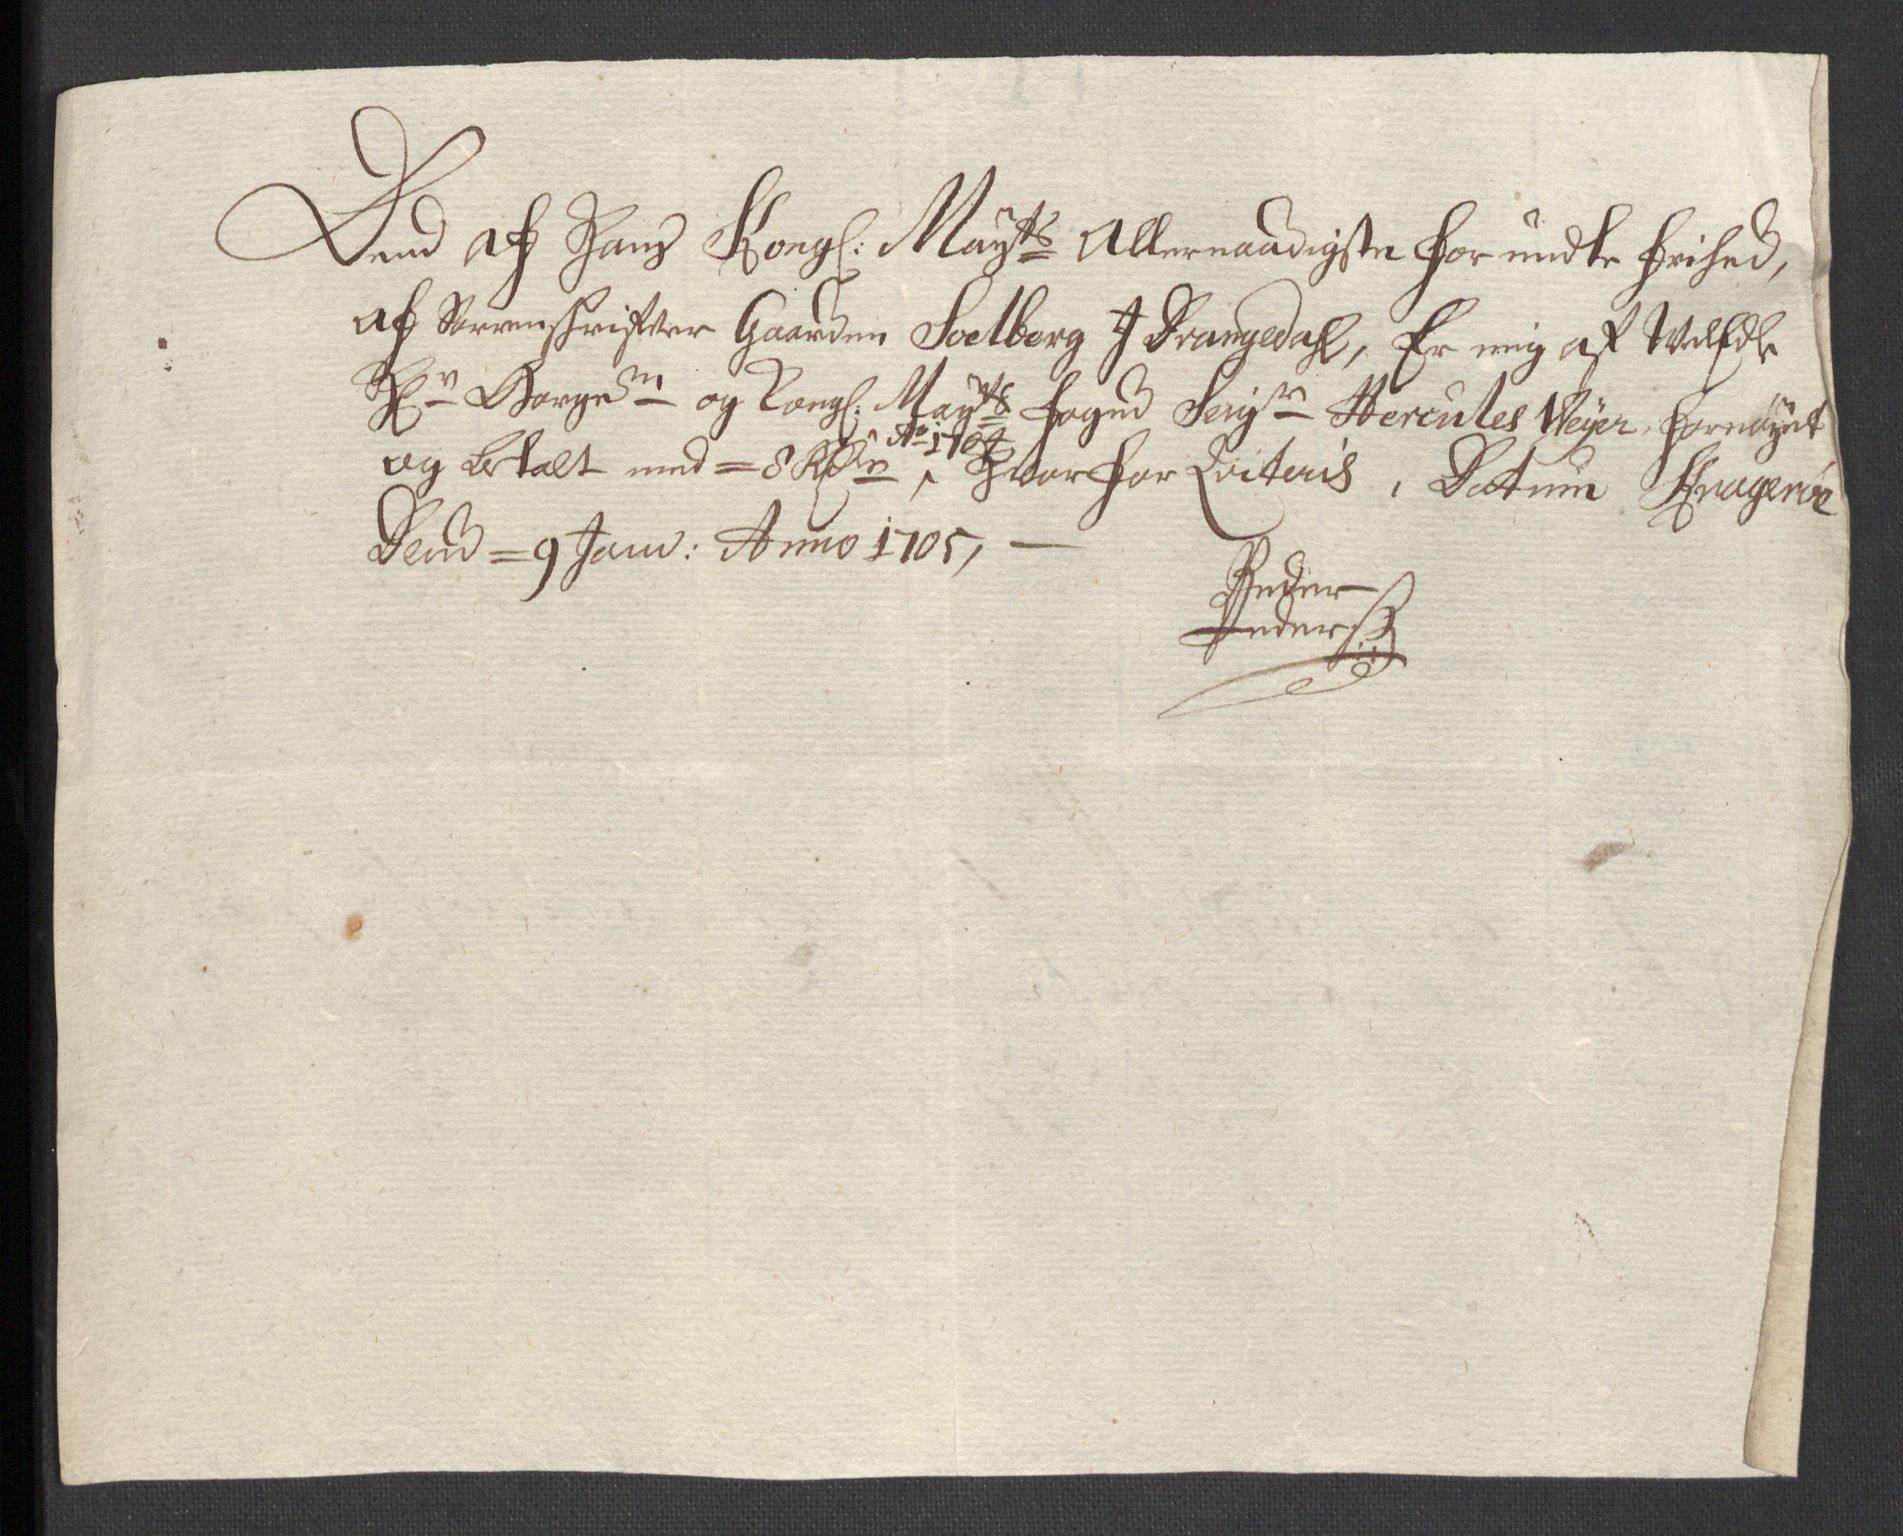 Dend af Hans Kongl: Mayts Allernaadigste forundte frihed,
af Sorrenskrifver Gaarden Soelberg J Drangedahl, Er mig af WelEdle
Hr Borgem og Kongl: Mayts foged Seigr Hercules Weyer, fornøyet
og betalt med = 8 Rdr Ao 1704, Hvorfor Qviteris, Datum Kragerøe
Dend = 9 Janu: Anno 1705, —
Peder
Pederß